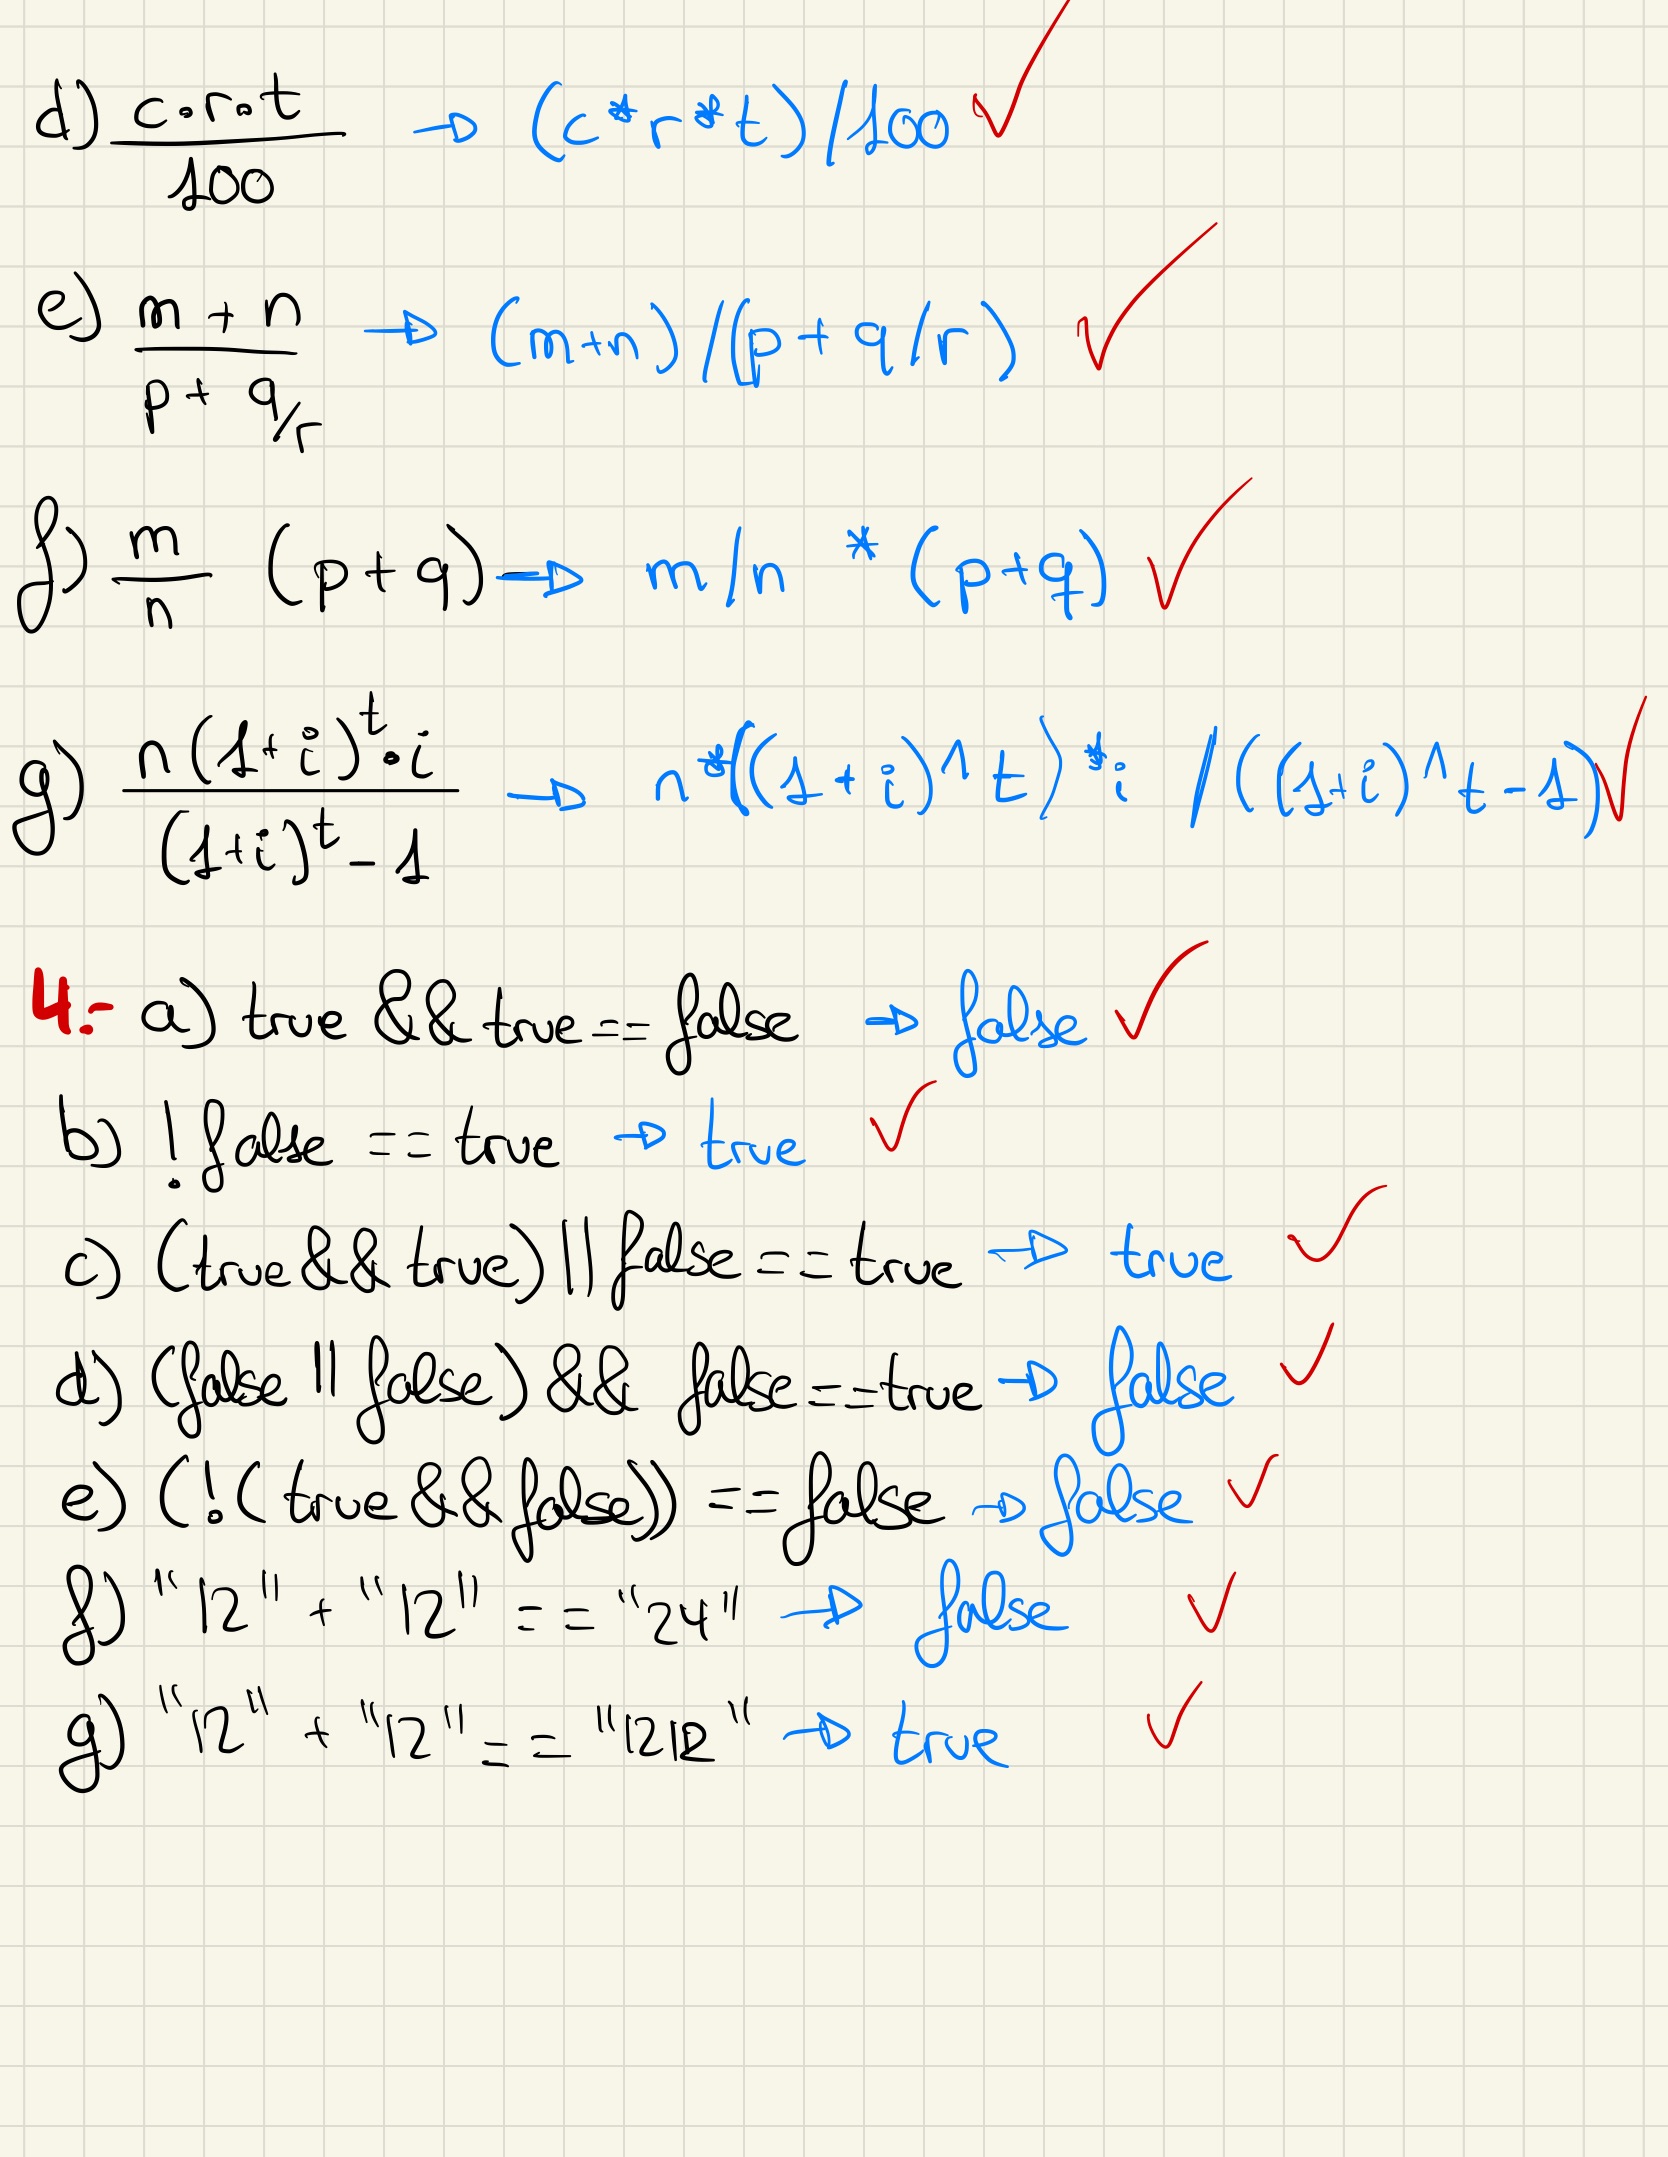 d) c·r·t / 100 → (c*r*t)/100 ✓
e) m + n / p + q/r → (m+n)/(p + q/r) ✓
f) m / n (p+q) → m/n * (p+q) ✓
g) n(1+i)^t·i / (1+i)^t - 1 → n*((1+i)^t)*i /((1+i)^t-1) ✓
4.- a) true && true == false → false ✓
b) !false == true → true ✓
c) (true && true) || false == true → true ✓
d) (false || false) && false == true → false ✓
e) (!(true && false)) == false → false ✓
f) "12" + "12" == "24" → false ✓
g) "12" + "12" == "1212" → true ✓